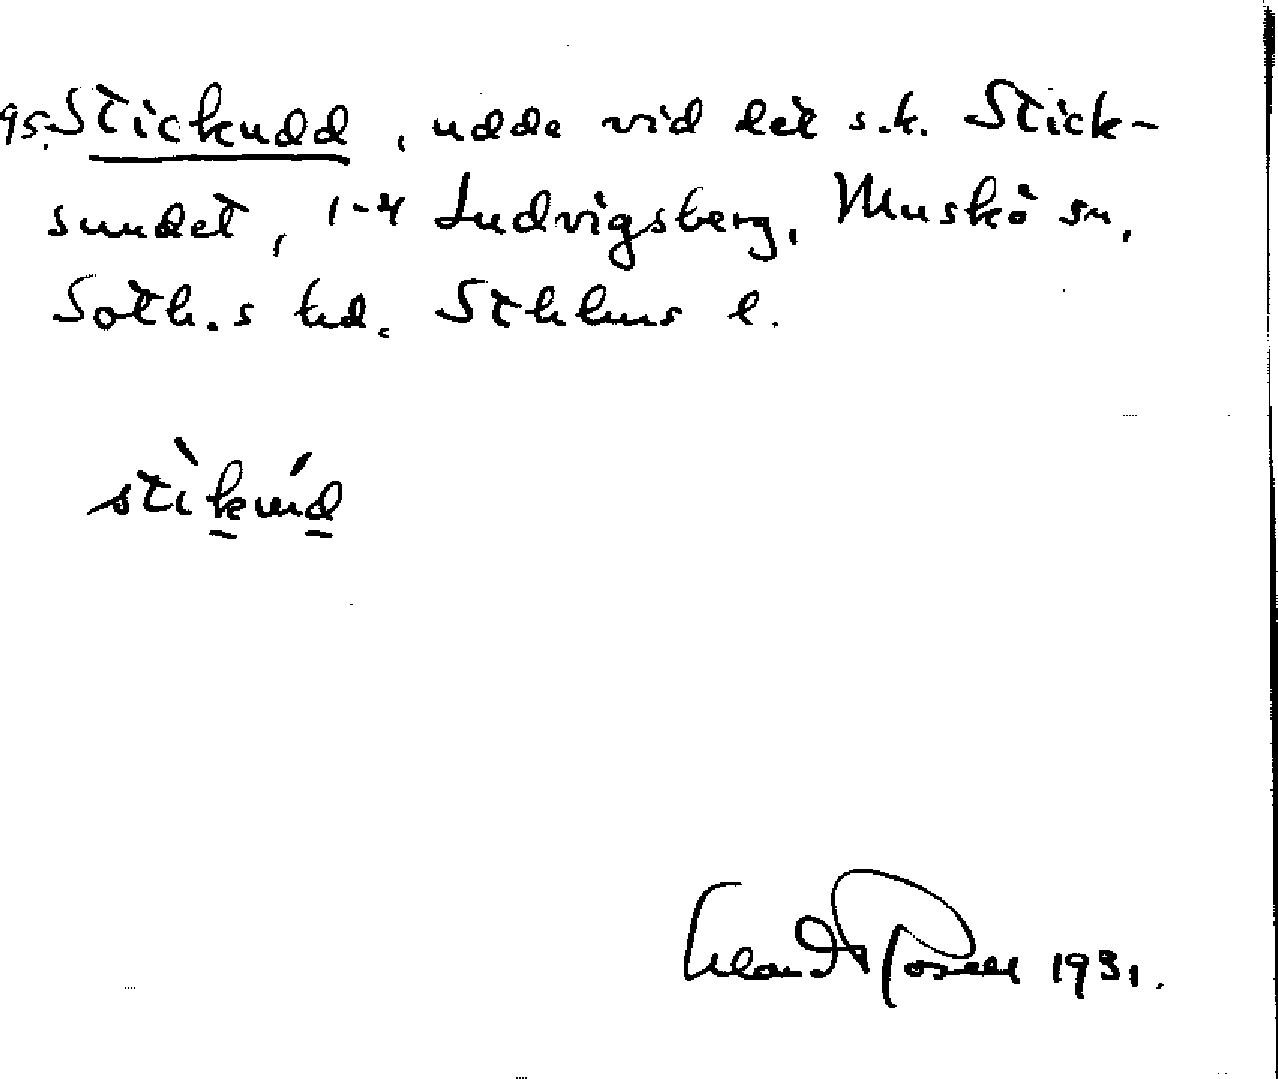 95. Stickudd, udde vid det s.k. Stick-
sundet, 1-4 Ludvigsberg, Muskö sn,
Soth.s hd. Sthlms l.
stìkúd
Erland Rosell 1931.